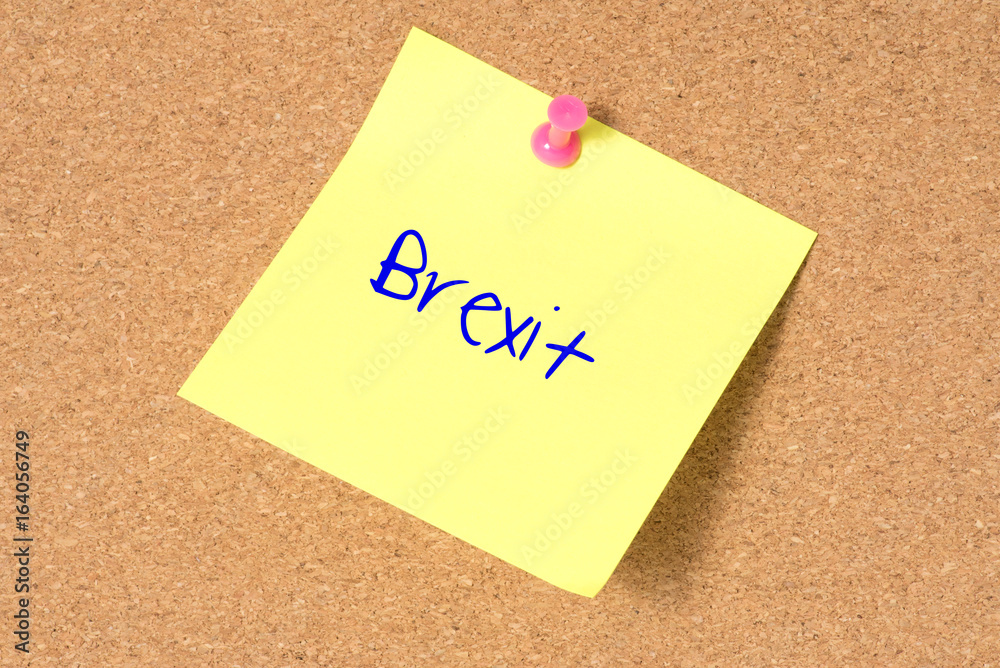 Brexit
Adobe Stock | #164056749